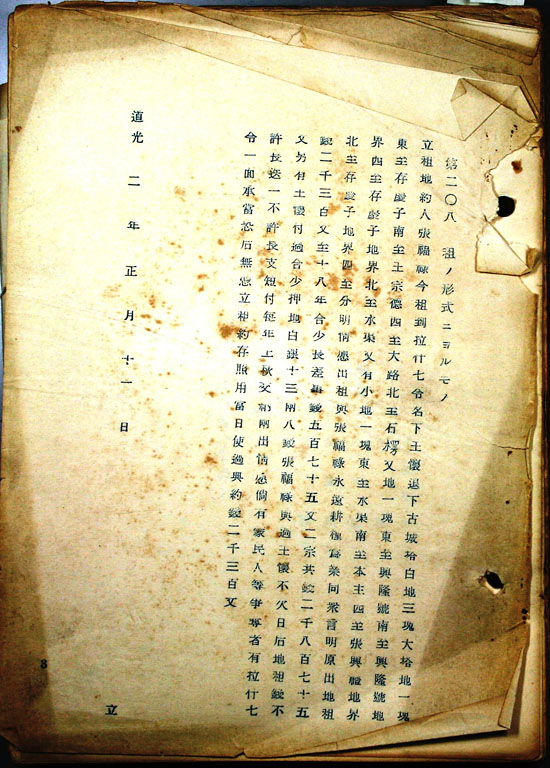 第二〇八 租ノ形式ニヨルモノ
立租地約人張福祿今租到拉什七令名下土默退下古城哈白地三塊大塔地一塊
東至存慶子南至王宗德四至大路北至石楞又地一塊東至興隆號南至興隆號地
界四至存慶子地界北至水渠又有小地一塊東至水渠南至本主四至張興職地界
北至存慶子地界四至分明情愿出租與張福祿永遠耕種為業同衆言明原出地租
錢二千三百文至十八年合少長差事錢五百七十五文二宗共錢二千八百七十五
文另有土默付過合少押地白銀十三兩八錢張福祿與過土默不欠日后地租錢不
許長迭一不許長支短付每年上秋交納兩出情愿倘有蒙民人等爭奪省有拉什七
令一面承當恐后無憑立租約存照用當日使過與約錢二千三百文
道光二年正月十一日
立
8